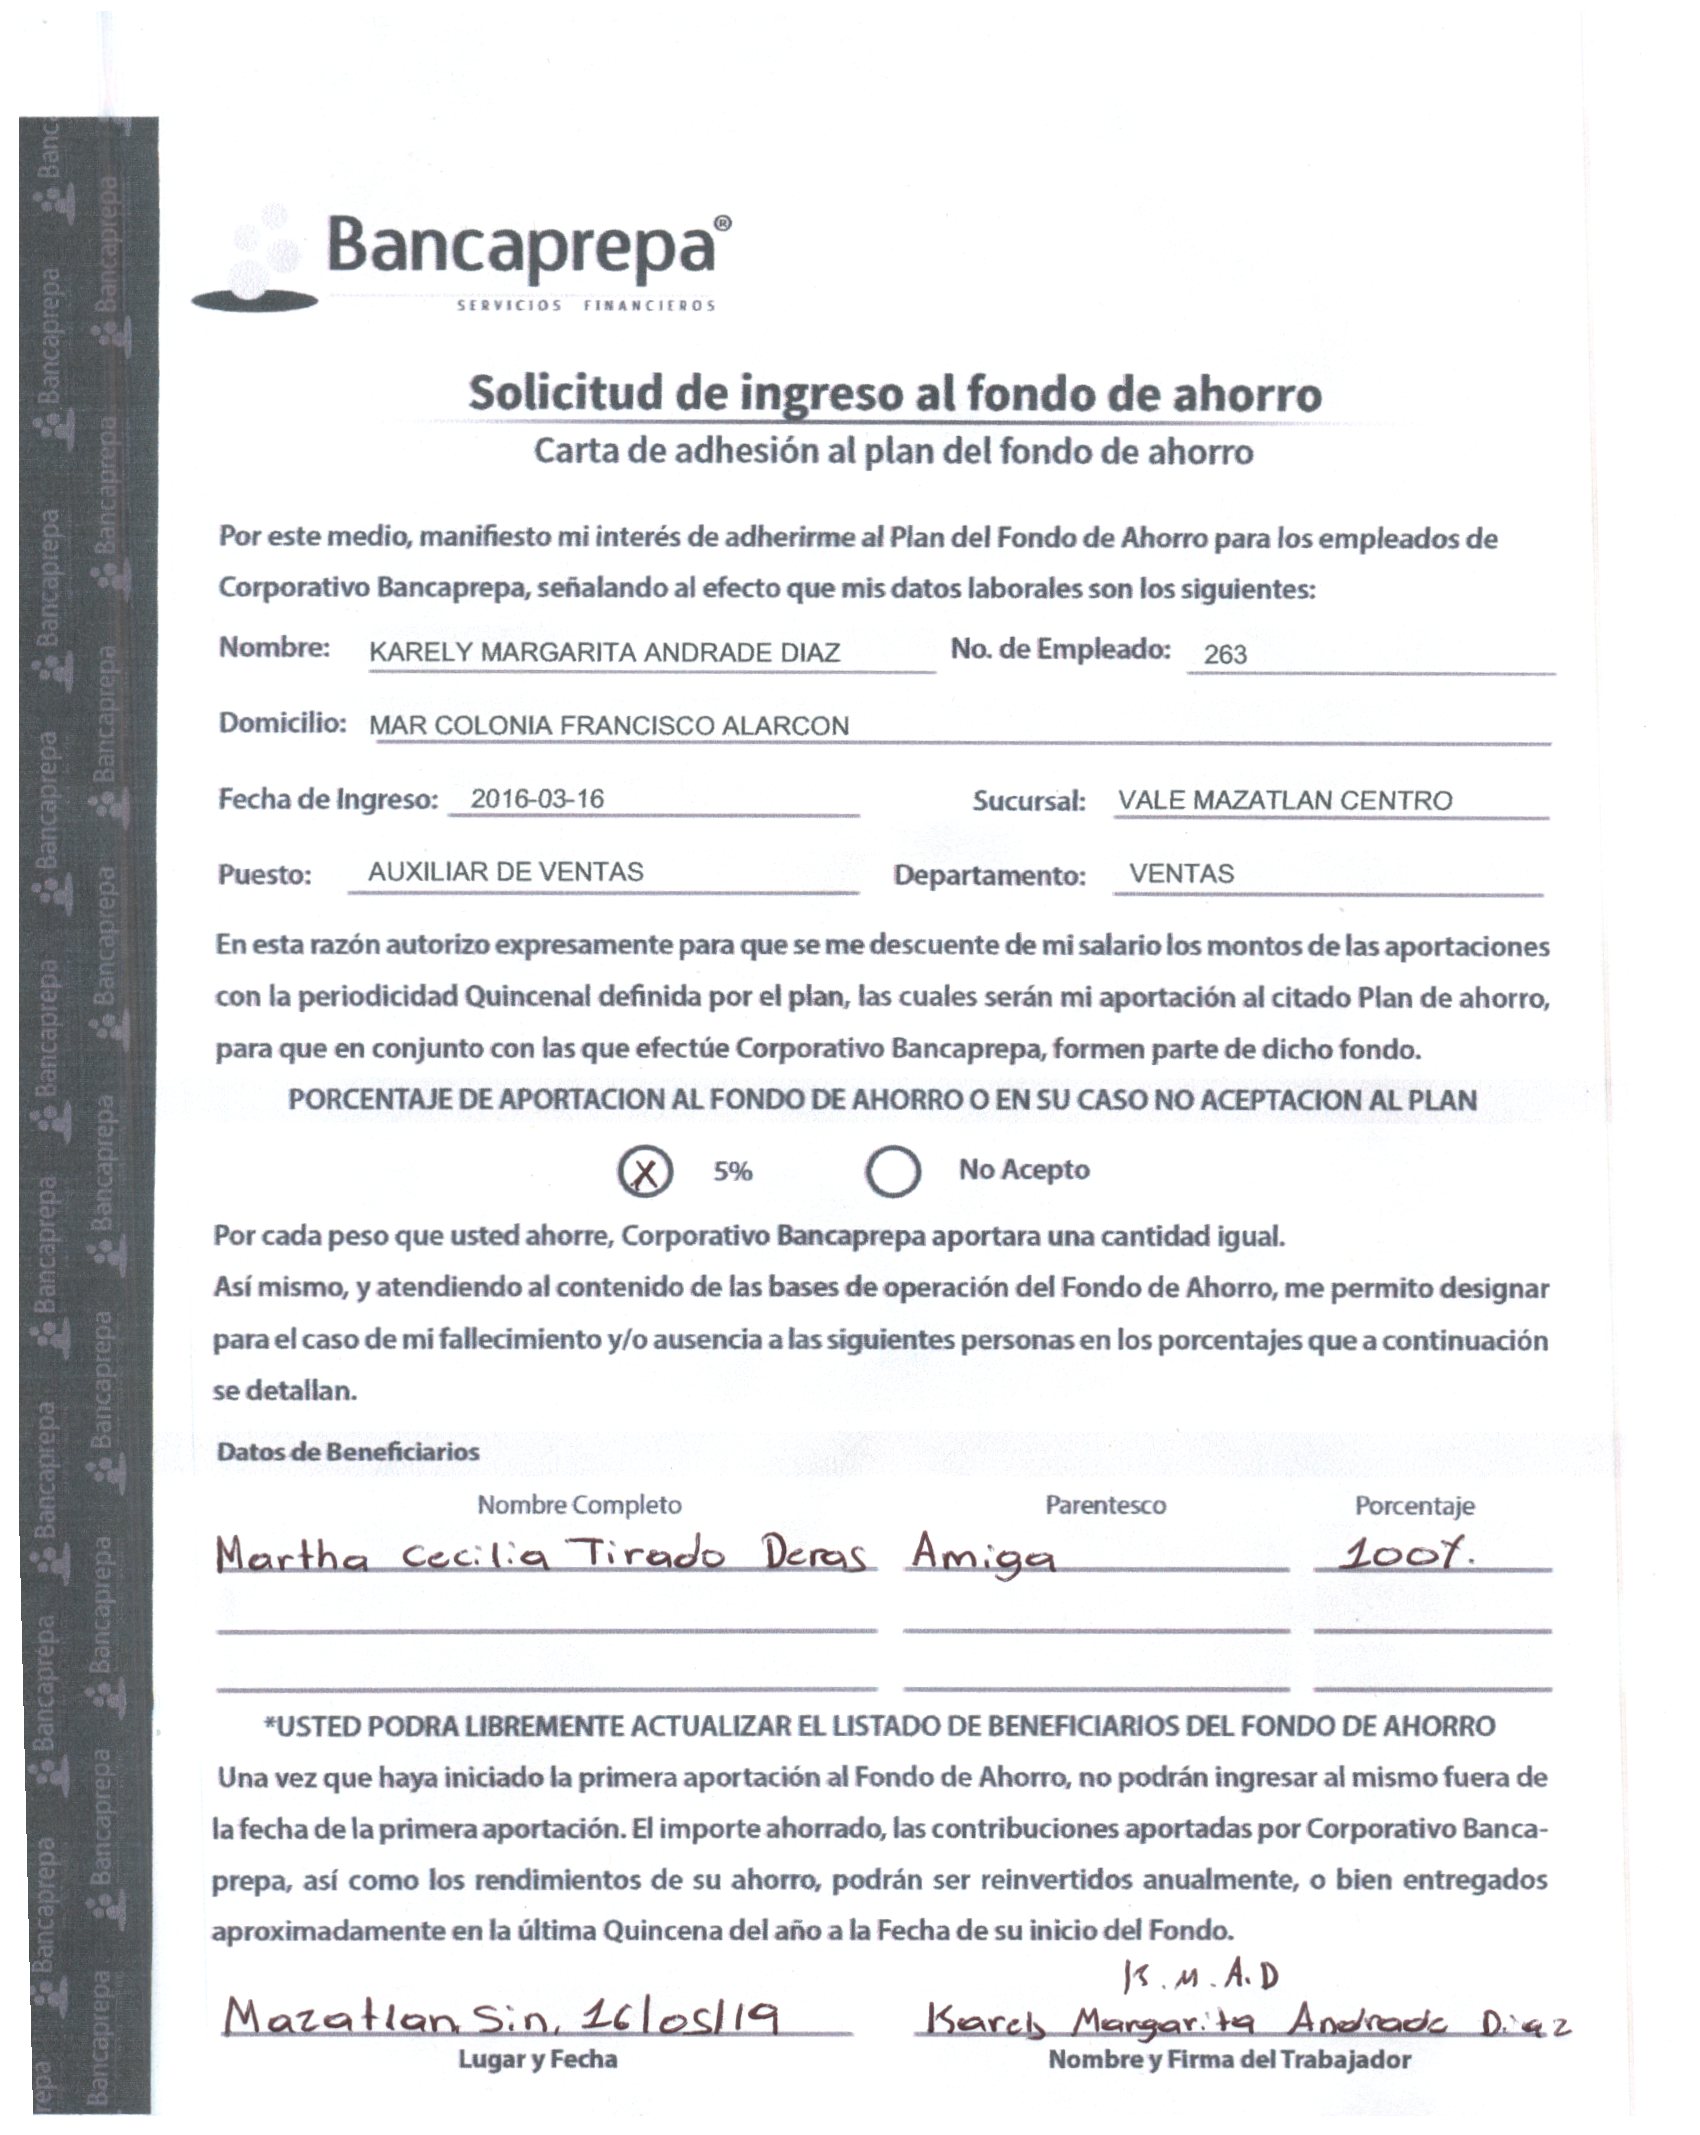 Bancaprepa®
SERVICIOS FINANCIEROS
Solicitud de ingreso al fondo de ahorro
Carta de adhesión al plan del fondo de ahorro
Por este medio, manifiesto mi interés de adherirme al Plan del Fondo de Ahorro para los empleados de
Corporativo Bancaprepa, señalando al efecto que mis datos laborales son los siguientes:
Nombre: KARELY MARGARITA ANDRADE DIAZ No. de Empleado: 263
Domicilio: MAR COLONIA FRANCISCO ALARCON
Fecha de Ingreso: 2016-03-16 Sucursal: VALE MAZATLAN CENTRO
Puesto: AUXILIAR DE VENTAS Departamento: VENTAS
En esta razón autorizo expresamente para que se me descuente de mi salario los montos de las aportaciones
con la periodicidad Quincenal definida por el plan, las cuales serán mi aportación al citado Plan de ahorro,
para que en conjunto con las que efectúe Corporativo Bancaprepa, formen parte de dicho fondo.
PORCENTAJE DE APORTACION AL FONDO DE AHORRO O EN SU CASO NO ACEPTACION AL PLAN
X 5% No Acepto
Por cada peso que usted ahorre, Corporativo Bancaprepa aportara una cantidad igual.
Así mismo, y atendiendo al contenido de las bases de operación del Fondo de Ahorro, me permito designar
para el caso de mi fallecimiento y/o ausencia a las siguientes personas en los porcentajes que a continuación
se detallan.
Datos de Beneficiarios
Nombre Completo Parentesco Porcentaje
Martha Cecilia Tirado Deras Amiga 100%.
*USTED PODRA LIBREMENTE ACTUALIZAR EL LISTADO DE BENEFICIARIOS DEL FONDO DE AHORRO
Una vez que haya iniciado la primera aportación al Fondo de Ahorro, no podrán ingresar al mismo fuera de
la fecha de la primera aportación. El importe ahorrado, las contribuciones aportadas por Corporativo Banca-
prepa, así como los rendimientos de su ahorro, podrán ser reinvertidos anualmente, o bien entregados
aproximadamente en la última Quincena del año a la Fecha de su inicio del Fondo.
K.M.A.D
Mazatlan, Sin, 16/05/19 Karely Margarita Andrade Diaz
Lugar y Fecha Nombre y Firma del Trabajador